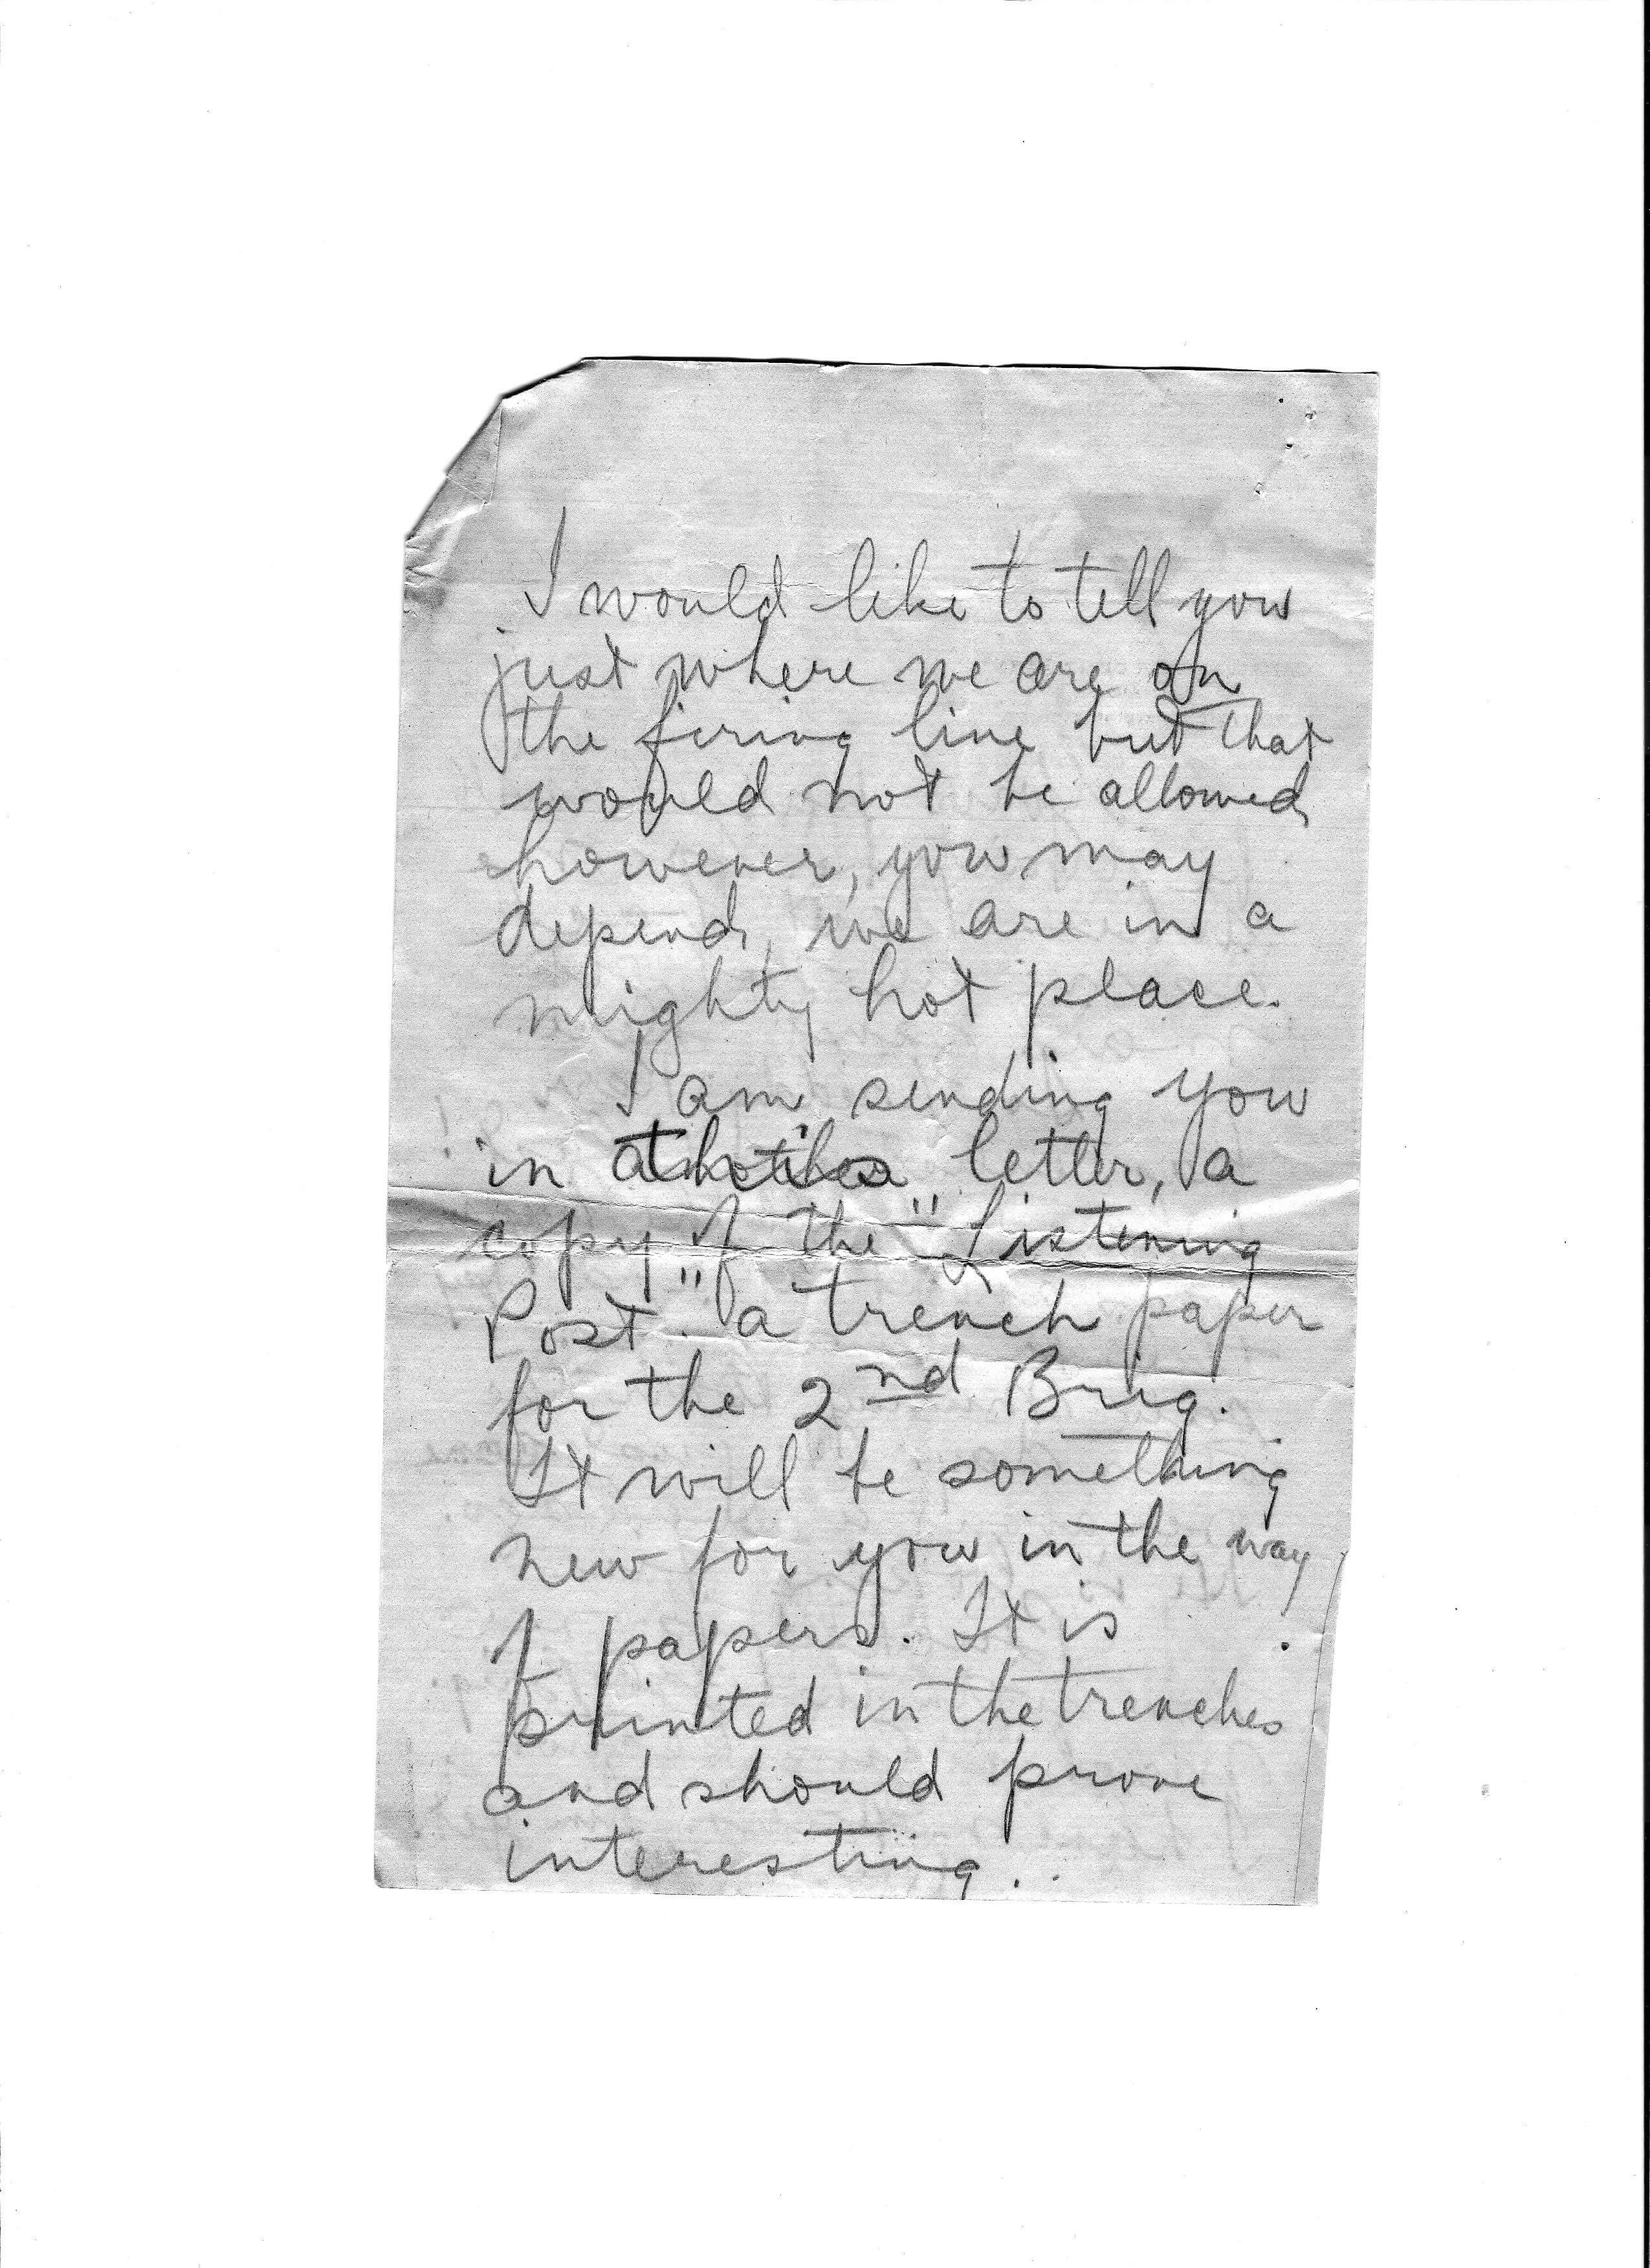 I would like to tell you
just where we are on
the firing line but that
would not be allowed
however, you may
depend, we are in a
mighty hot place.
I am sending you
in letter, a
copy of the "Listening
Post". a trench paper
for the 2nd Brig.
It will be something
new for you in the way
of papers. It is
printed in the trenches
and should prove
interesting..